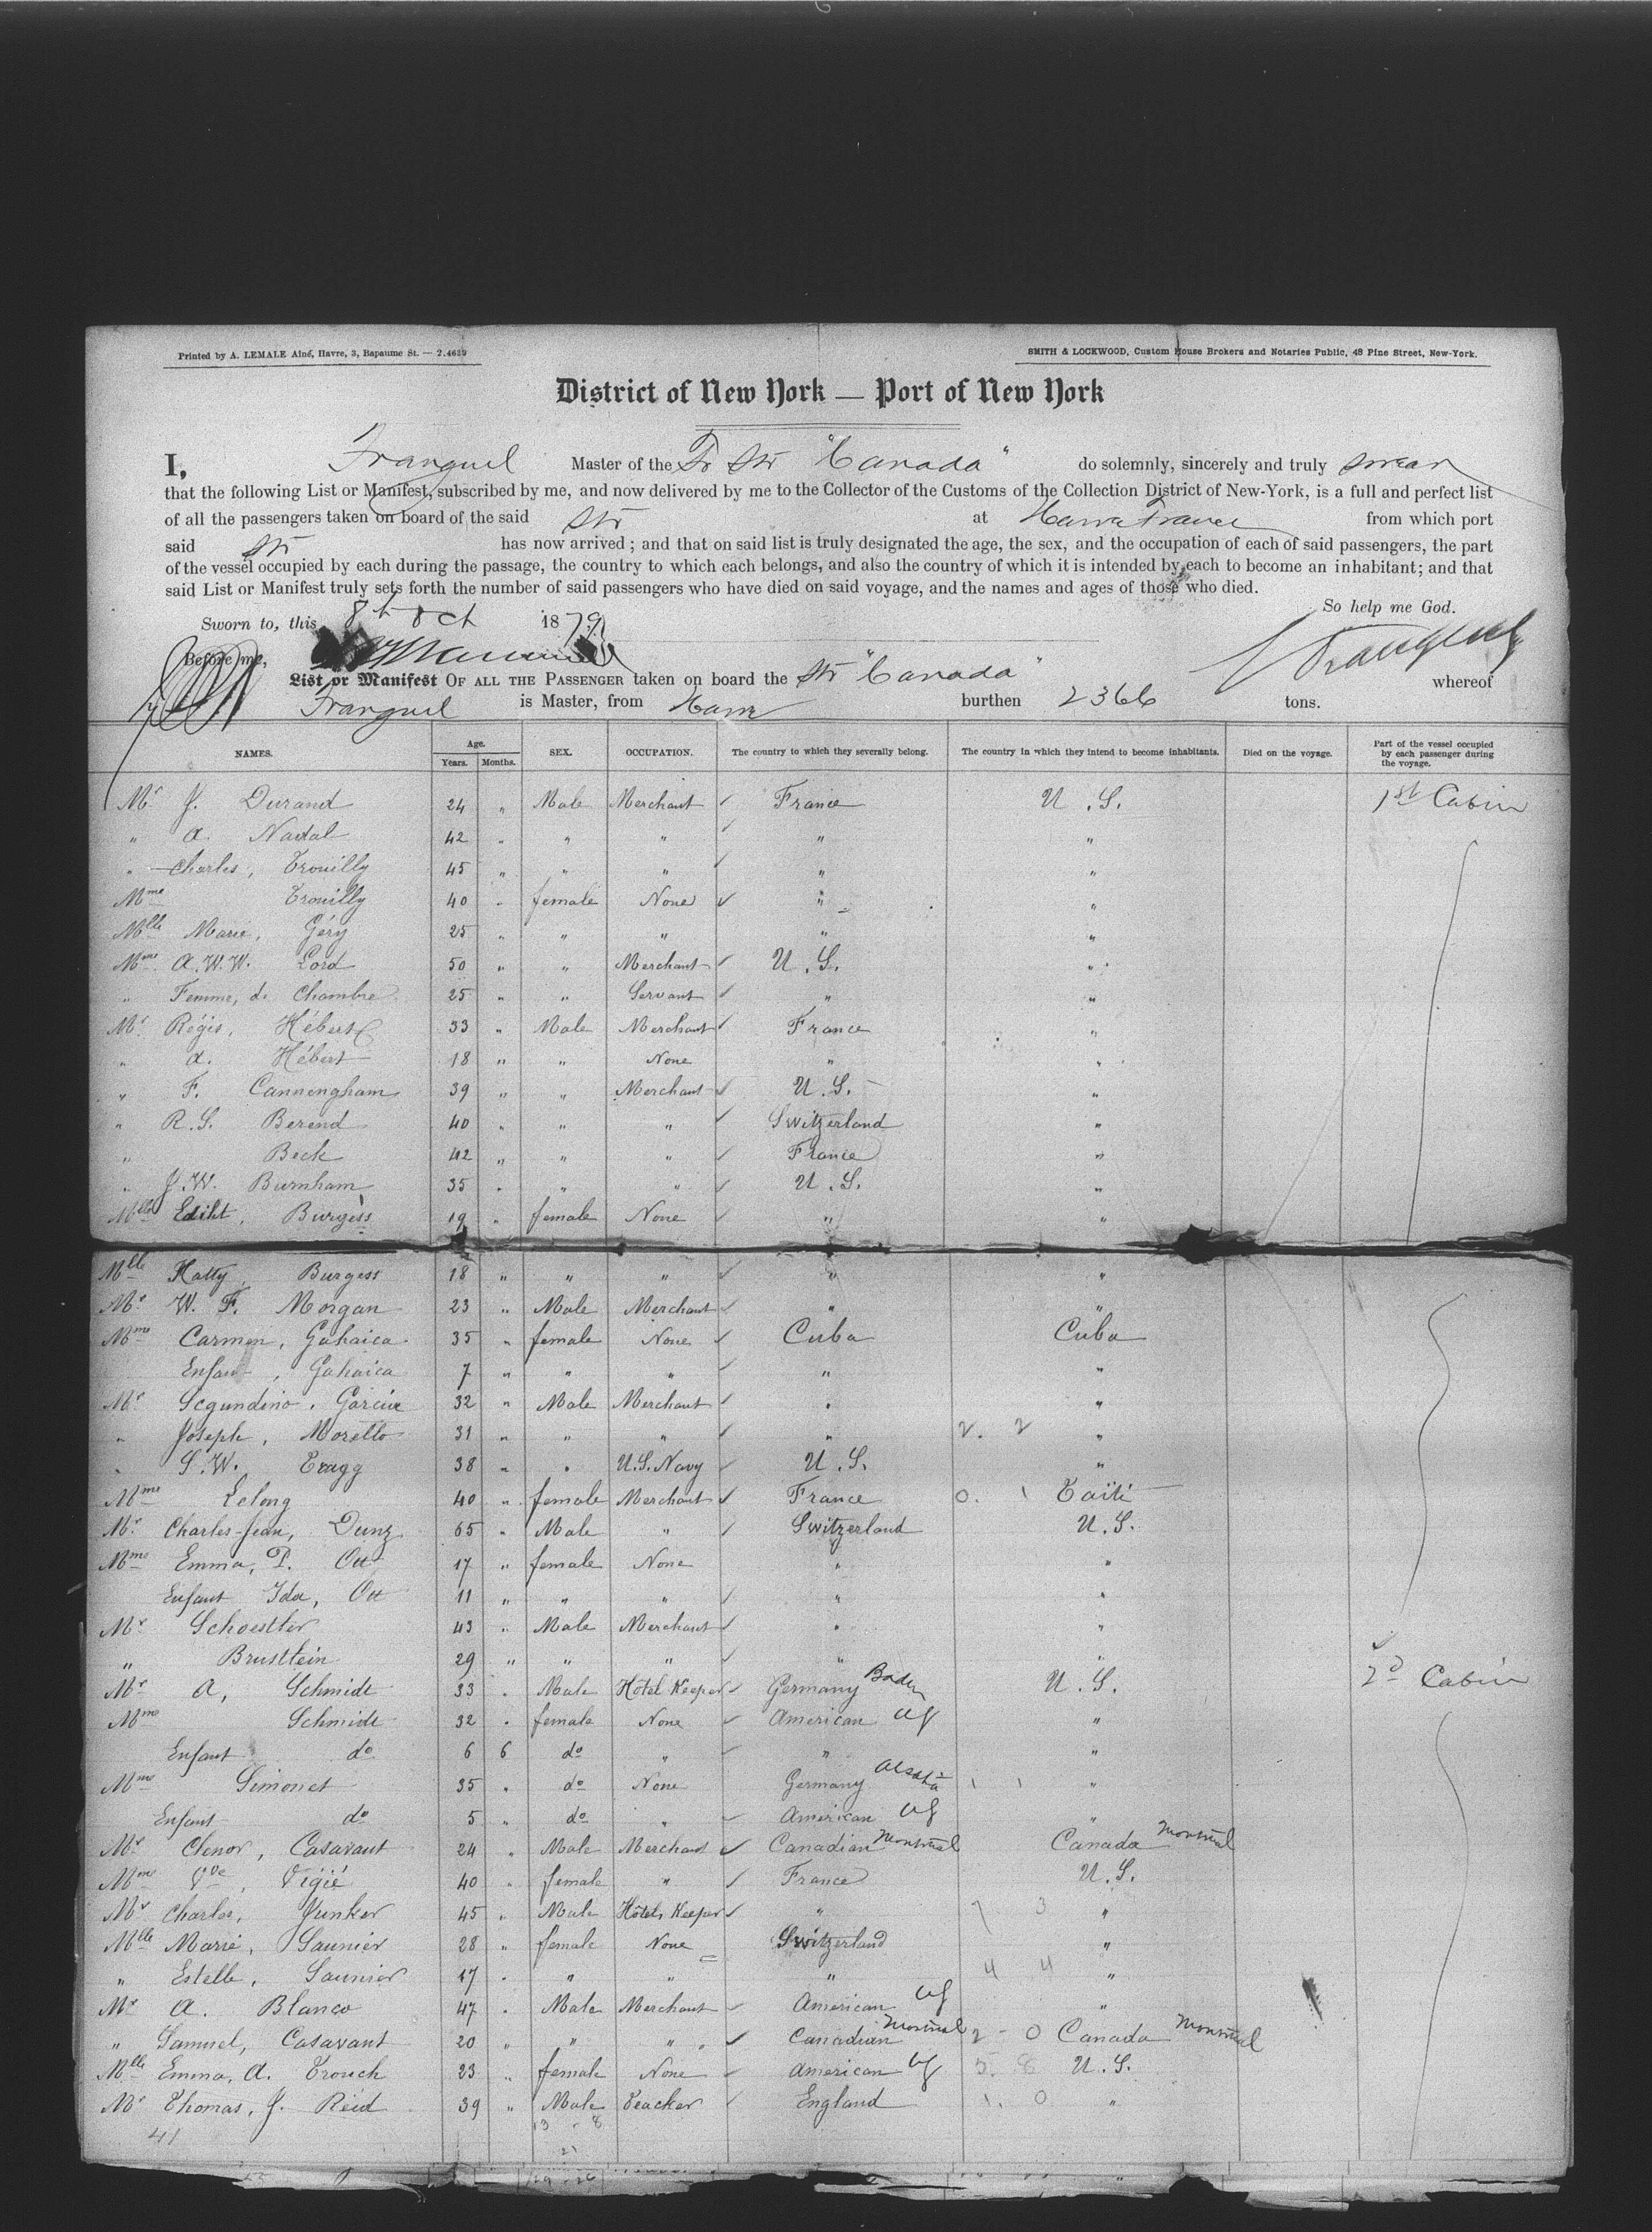 Printed by A. LEMALE Aîné, Havre, 3, Bapaume St. — 2.4639
SMITH & LOCKWOOD, Custom House Brokers and Notaries Public, 48 Pine Street, New-York.
District of New York — Port of New York
I, Franguel Master of the Fr Str "Canada" do solemnly, sincerely and truly swear
that the following List or Manifest, subscribed by me, and now delivered by me to the Collector of the Customs of the Collection District of New-York, is a full and perfect list
of all the passengers taken on board of the said Str at Havre France from which port
said Str has now arrived ; and that on said list is truly designated the age, the sex, and the occupation of each of said passengers, the part
of the vessel occupied by each during the passage, the country to which each belongs, and also the country of which it is intended by each to become an inhabitant; and that
said List or Manifest truly sets forth the number of said passengers who have died on said voyage, and the names and ages of those who died.
So help me God.
Sworn to, this 8th Oct 1879
Before me,
Frangeul
List or Manifest OF ALL THE PASSENGER taken on board the Str "Canada" whereof
Franguel is Master, from Havre burthen 2366 tons.
NAMES. Age. Years. Months. SEX. OCCUPATION. The country to which they severally belong. The country in which they intend to become inhabitants. Died on the voyage. Part of the vessel occupied by each passenger during the voyage.
Mr J. Durand 24 " Male Merchant France U.S. 1st Cabin
" A. Nadal 42 " " " " "
" Charles, Trouilly 45 " " " " "
Mme Trouilly 40 " female None " "
Mlle Marie, Géry 25 " " " " "
Mme A.W.W. Lord 50 " " Merchant U.S. "
" Femme, de Chambre 25 " " Servant " "
Mr Régis, Hébert 33 " Male Merchant France "
" A. Hébert 18 " " None " "
" F. Cannengham 39 " " Merchant U.S. "
" R.S. Berend 40 " " " Switzerland "
" Beck 42 " " " France "
" J.W. Burnham 35 " " " U.S. "
Mlle Ediht, Burgess 19 " female None " "
Mlle Hatty, Burgess 18 " " " " "
Mr W. F. Morgan 23 " Male Merchant " "
Mme Carmen, Gahaica 35 " female None Cuba Cuba
Enfant, Gahaica 7 " " " " "
Mr Segundino, Garcia 32 " Male Merchant " "
" Joseph, Moretto 31 " " " " 2. 2 "
" S.W. Tragg 38 " " U.S. Navy U.S. "
Mme Lelong 40 " female Merchant France 0. 1 Taïti
Mr Charles-Jean, Dunz 65 " Male " Switzerland U.S.
Mme Emma, P. Ott 17 " female None " "
Enfant Ida, Ott 11 " " " " "
Mr Schoestler 43 " Male Merchant " "
" Brusttein 29 " " " " "
Mr A, Schmidt 33 " Male Hôtel Keeper Germany Baden U.S. 2d Cabin
Mme Schmidt 32 " female None American "
Enfant do 6 6 do " " "
Mme Simonet 35 " do None Germany Alsatia 1 1 "
Enfant do 5 " do " American "
Mr Clenor, Casavant 24 " Male Merchant Canadian Montreal Canada Montreal
Mme Vve, Vigié 40 " female " France U.S.
Mr Charles, Junker 45 " Male Hôtel Keeper " 7 3 "
Mlle Marie, Saunier 28 " female None Switzerland "
" Estelle, Saunier 17 " " " " 4 4 "
Mr A. Blanco 47 " Male Merchant American "
" Samuel, Casavant 20 " " " Canadian Montreal 2 - 0 Canada Montreal
Mlle Emma, A. Trouch 23 " female None American 5. 8 U.S.
Mr Thomas, J. Reid 39 " Male Teacker England 1. 0 "
41 13 - 8
21